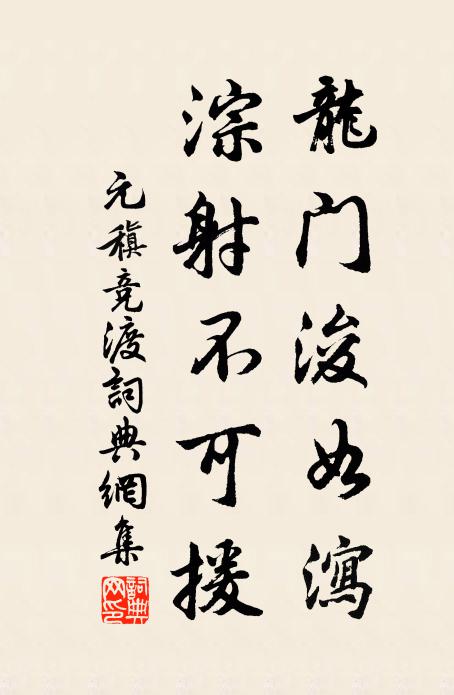 龍门浚如瀉
淙射不可援
元稹竞渡詞典網集
詞典网印